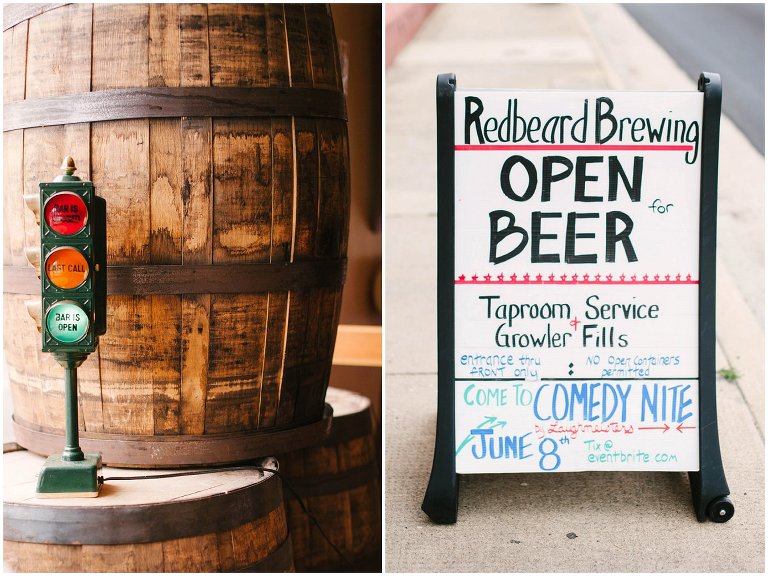 BAR IS
CLOSED
LAST CALL
BAR IS
OPEN
Redbeard Brewing
OPEN
for
BEER
Taproom Service
&
Growler Fills
entrance thru
FRONT only
:
NO Open Containers
permitted
COME TO COMEDY NITE
by Laughmeisters
JUNE 8th
Tix @
eventbrite.com